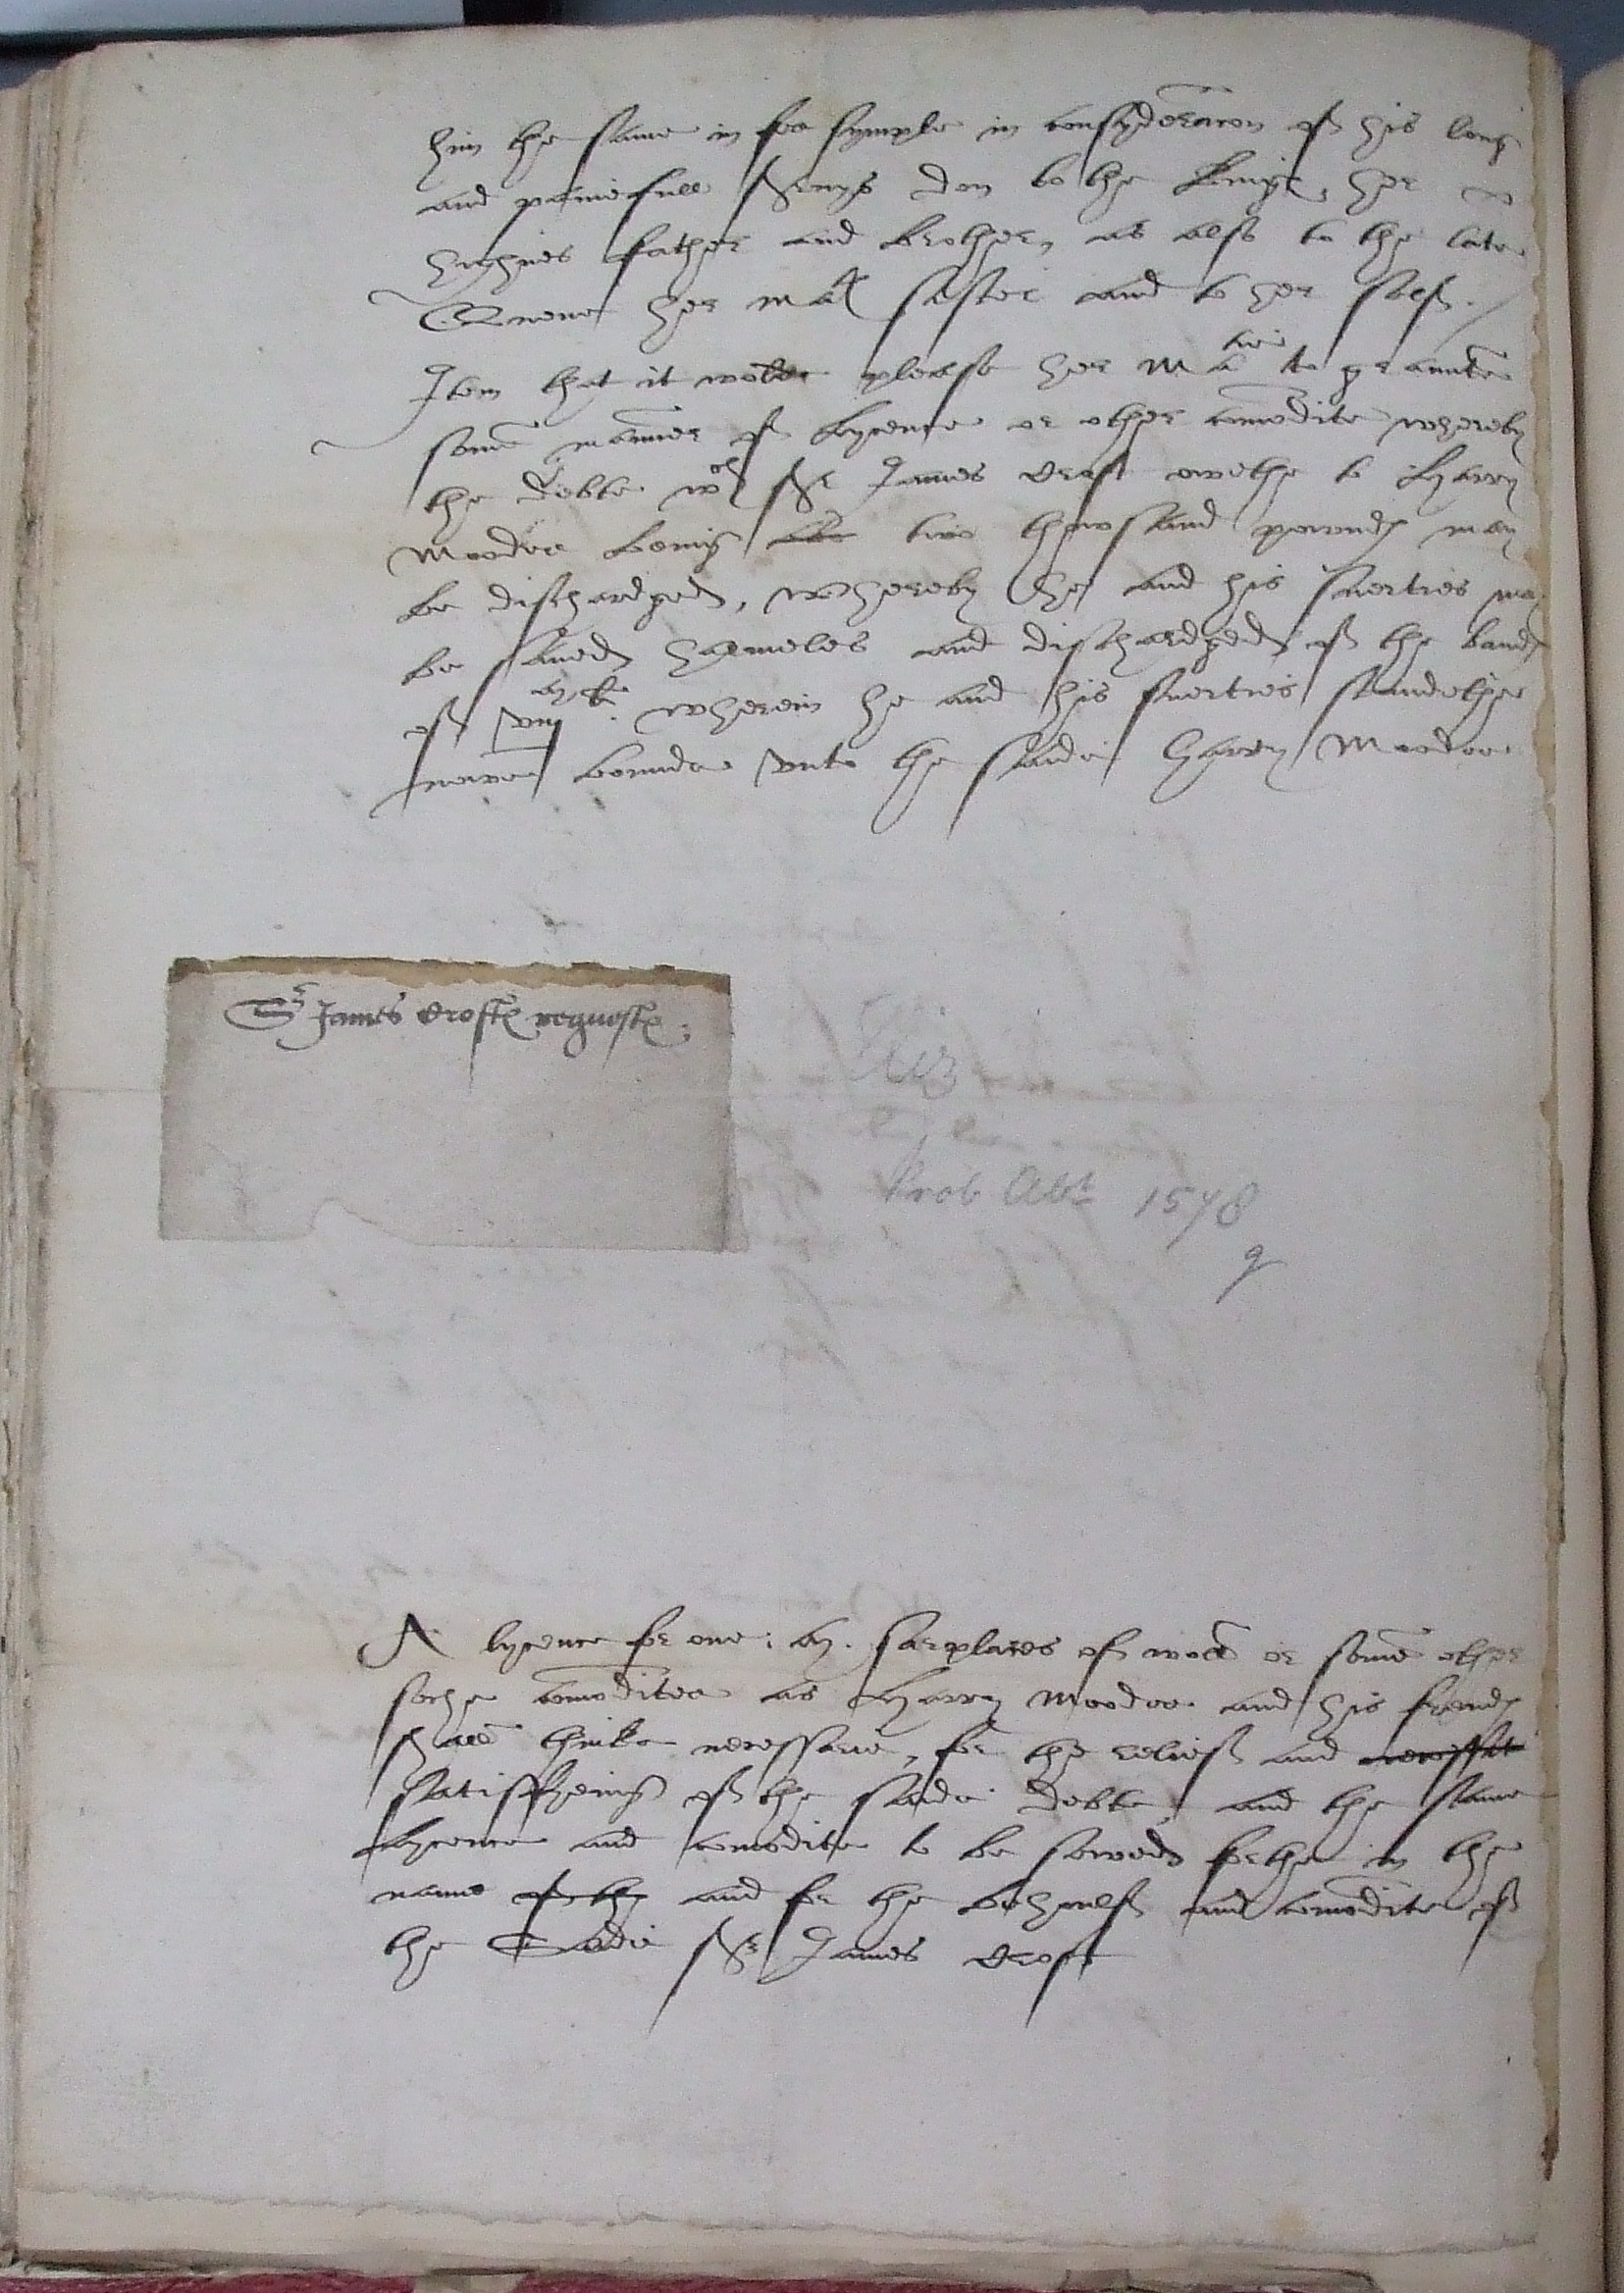 him the same in fee symple in consyderacon of his long
and painefull servys don to the Kinge, her
hyghnes father and brother, as also to the late
Quene her mats sister and to her self.
Item that it wolde please her Matie to graunte
some manner of lycence or other comodite whereby
the debte wch Sr James Croft owethe to Harry
Moodee beeing two thowsand pownds may
be dischardged, whereby he and his suerties may
be saved harmeles and dischardged of the bands
of wherein he and his suerties standethe
nowe bounde unto the saide Harry Moodee
Sr James Crofts requeste.
Eliz
Prob Abt 1578
q
A lycence for one: sarplares of woll or some other
soche comoditee as Harry Moodee and his frends
shall thinke necessarie, for the relief and necessat
satisfyeing of the saide debte, and the same
lycence and comodite to be sowed forthe in the
name of the and for the behoulf and comodite of
the Sade Sr James Croft